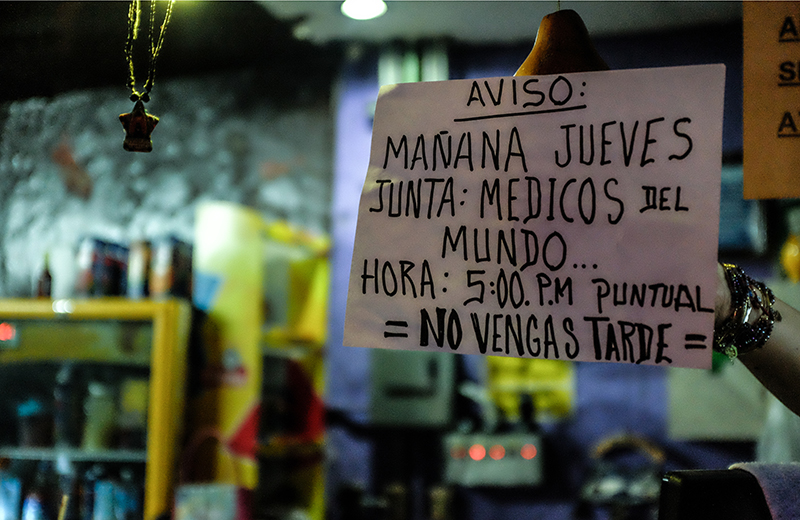 AVISO:
MAÑANA JUEVES
JUNTA: MEDICOS DEL
MUNDO...
HORA: 5:00.P.M PUNTUAL
= NO VENGAS TARDE =